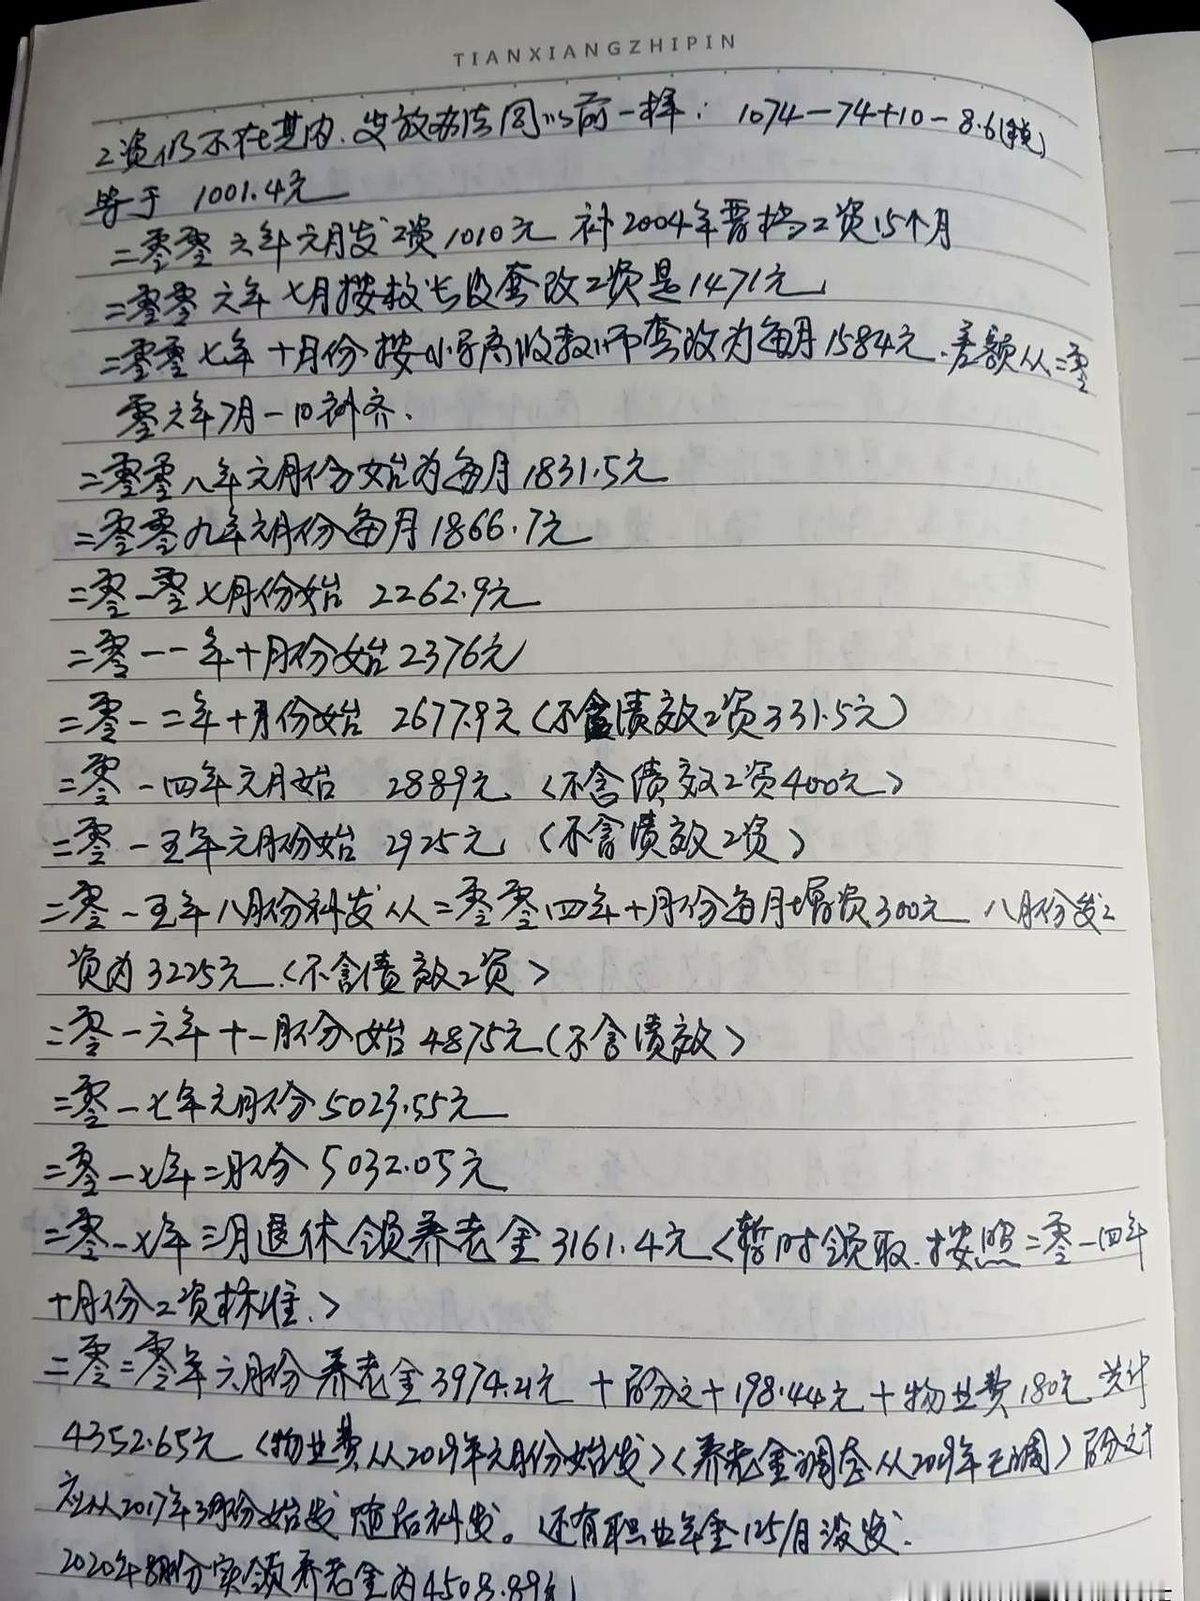 TIANXIANGZHIPIN
工资仍不在其内.发放办法同以前一样: 1074-74+10-8.6(税)
等于 1001.4元
二零零六年元月发工资1010元 补2004年晋档工资15个月
二零零六年七月按校长级套改工资是1471元
二零零七年十月份按小学高级教师套改为每月1584元.差额从二零
零六年7月-10补齐.
二零零八年元月份始为每月1831.5元
二零零九年元月份每月1866.7元
二零一零七月份始 2262.9元
二零一一年十月份始2376元
二零一二年十月份始 2677.9元(不含绩效工资331.5元)
二零一四年元月始 2889元 <不含绩效工资400元>
二零一五年元月份始 2925元 (不含绩效工资)
二零一五年八月份补发从二零零四年十月份每月增资300元 八月份发工
资为3225元.<不含绩效工资>
二零一六年十一月份始4875元(不含绩效>
二零一七年元月份5023.55元
二零一七年二月份 5032.05元
二零一七年三月退休领养老金3161.4元<暂时领取.按照二零一四年
十月份工资标准.>
二零二零年六月份养老金3974.21元 +百分之+198.44元+物业费180元 共计
4352.65元 <物业费从2019年元月份始发><养老金调态从2019年已调> 百分之十
应从2017年3月份始发 随后补发。还有职业年金125/月没发.
2020年8月份实领养老金为4508.89元